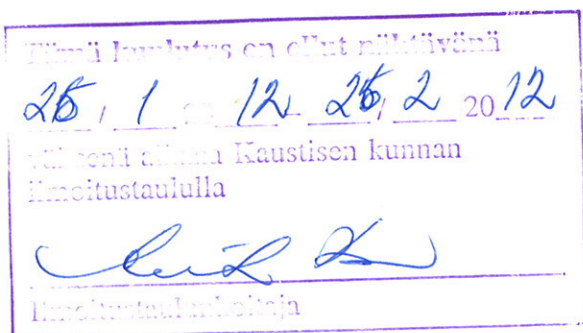 Tämä kuulutus on ollut nähtävänä
/ 1 20 12 - / 2 20 12
välisenä aikana Kaustisen kunnan
ilmoitustaululla
Ilmoitustaulunhoitaja